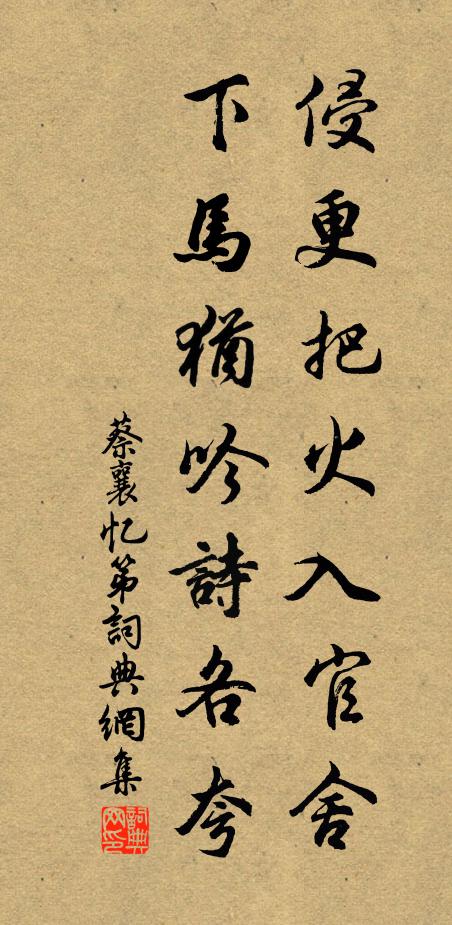 侵更把火入官舍
下馬猶吟詩各夸
蔡襄忆弟詞典網集
詞典网印